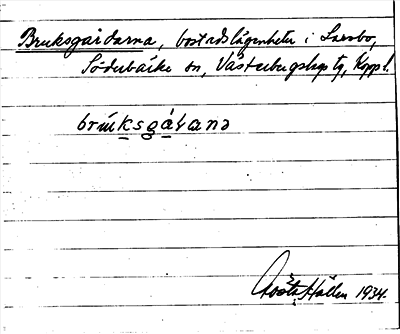 Bruksgårdarna, bostadslägenheter i Larsbo,
Söderbärke sn, Västerbergslags tg, Kopp l.
brúksgárana
Gösta Hallen 1934.